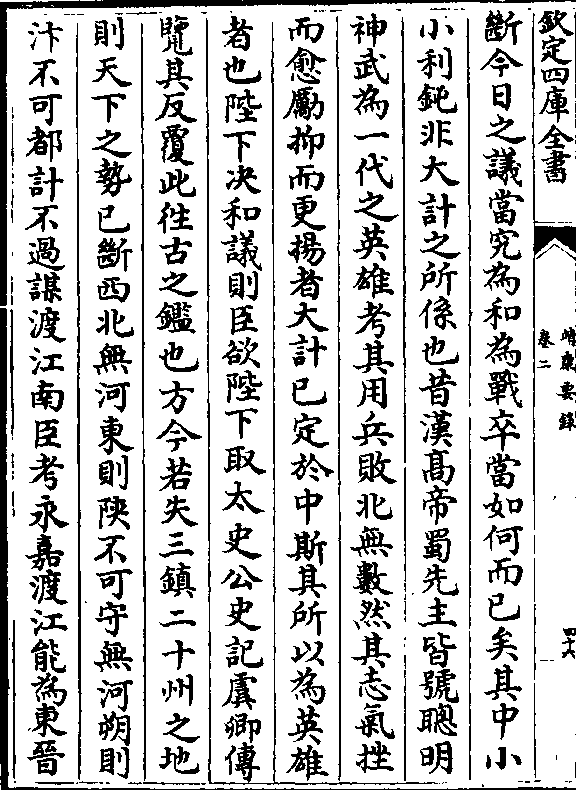 欽定四庫全書
靖康要錄
卷二
四十六
斷今日之議當究為和為戰卒當如何而已矣其中小
小利鈍非大計之所係也昔漢髙帝蜀先主皆號聰明
神武為一代之英雄考其用兵敗北無數然其志氣挫
而愈勵抑而更揚者大計已定於中斯其所以為英雄
者也陛下决和議則臣欲陛下取太史公史記虞卿傳
覽其反覆此徃古之鑑也方今若失三鎮二十州之地
則天下之勢已斷西北無河東則陝不可守無河朔則
汴不可都計不過謀渡江南臣考永嘉渡江能為東晉